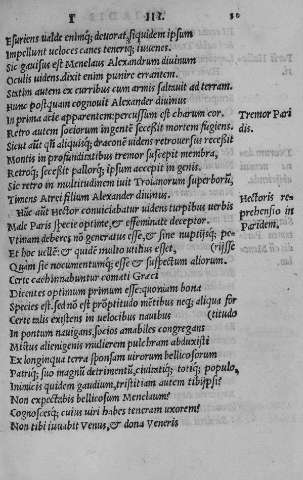 Γ III. 30
Esuriens ualde enimq; deuorat, siquidem ipsum
Impellunt ueloces canes teneriq; iuuenes.
Sic gauisus est Menelaus Alexandrum diuinum
Oculis uidens. dixit enim punire errantem.
Statim autem ex curribus cum armis saltauit ad terram.
Hunc postquam cognouit Alexander diuinus
In prima acie apparentem: percussum est charum cor.
Tremor Pari
Retro autem sociorum ingentē secessit mortem fugiens.
dis.
Sicut aūt qñ aliquis, draconē uidens retrouersus recessit
Montis in profunditatibus tremor suscepit membra,
Retroq; secessit pallorq; ipsum accepit in genis.
Sic retro in multitudinem iuit Troianorum superborū,
Timens Atrei filium Alexander diuinus.
Hunc aūt Hector conuiciabatur uidens turpibus uerbis
Hectoris re
Male Paris specie optime, & effœminate deceptor.
prehensio in
Vtinam deberes nō generatus esse, & sine nuptijsq; pe-
Paridem,
Et hoc uellē: & quidē multo utilius esset, (rijsse
Quàm sic nocumentumq; esse & suspectum aliorum.
Certe cachinnabuntur comati Græci
Dicentes optimum primum esse: quoniam bona
Species est. sed nō est prōptitudo mētibus neq; aliqua for
Certe talis existens in uelocibus nauibus (titudo
In pontum nauigans, socios amabiles congregans
Mistus alienigenis mulierem pulchram abduxisti
Ex longinqua terra sponsam uirorum bellicosorum
Patriq; tuo magnū detrimentū, ciuitatiq; totiq; populo,
Inimicis quidem gaudium, tristitiam autem tibijpsi?
Non expectabis bellicosum Menelaum?
Cognosceres; cuius uiri habes teneram uxorem?
Non tibi iuuabit Venus, & dona Veneris